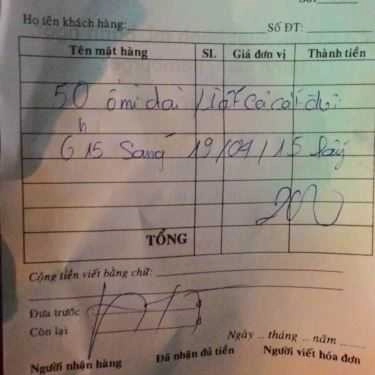 Họ tên khách hàng: Số ĐT:
Tên mặt hàng SL Giá đơn vị Thành tiền
50 ổ mì dài
6h15 sáng 19/04/15 lấy
200
TỔNG
Cộng tiền viết bằng chữ:
Đưa trước
Còn lại
Ngày ... tháng ... năm
Người nhận hàng Đã nhận đủ tiền Người viết hóa đơn